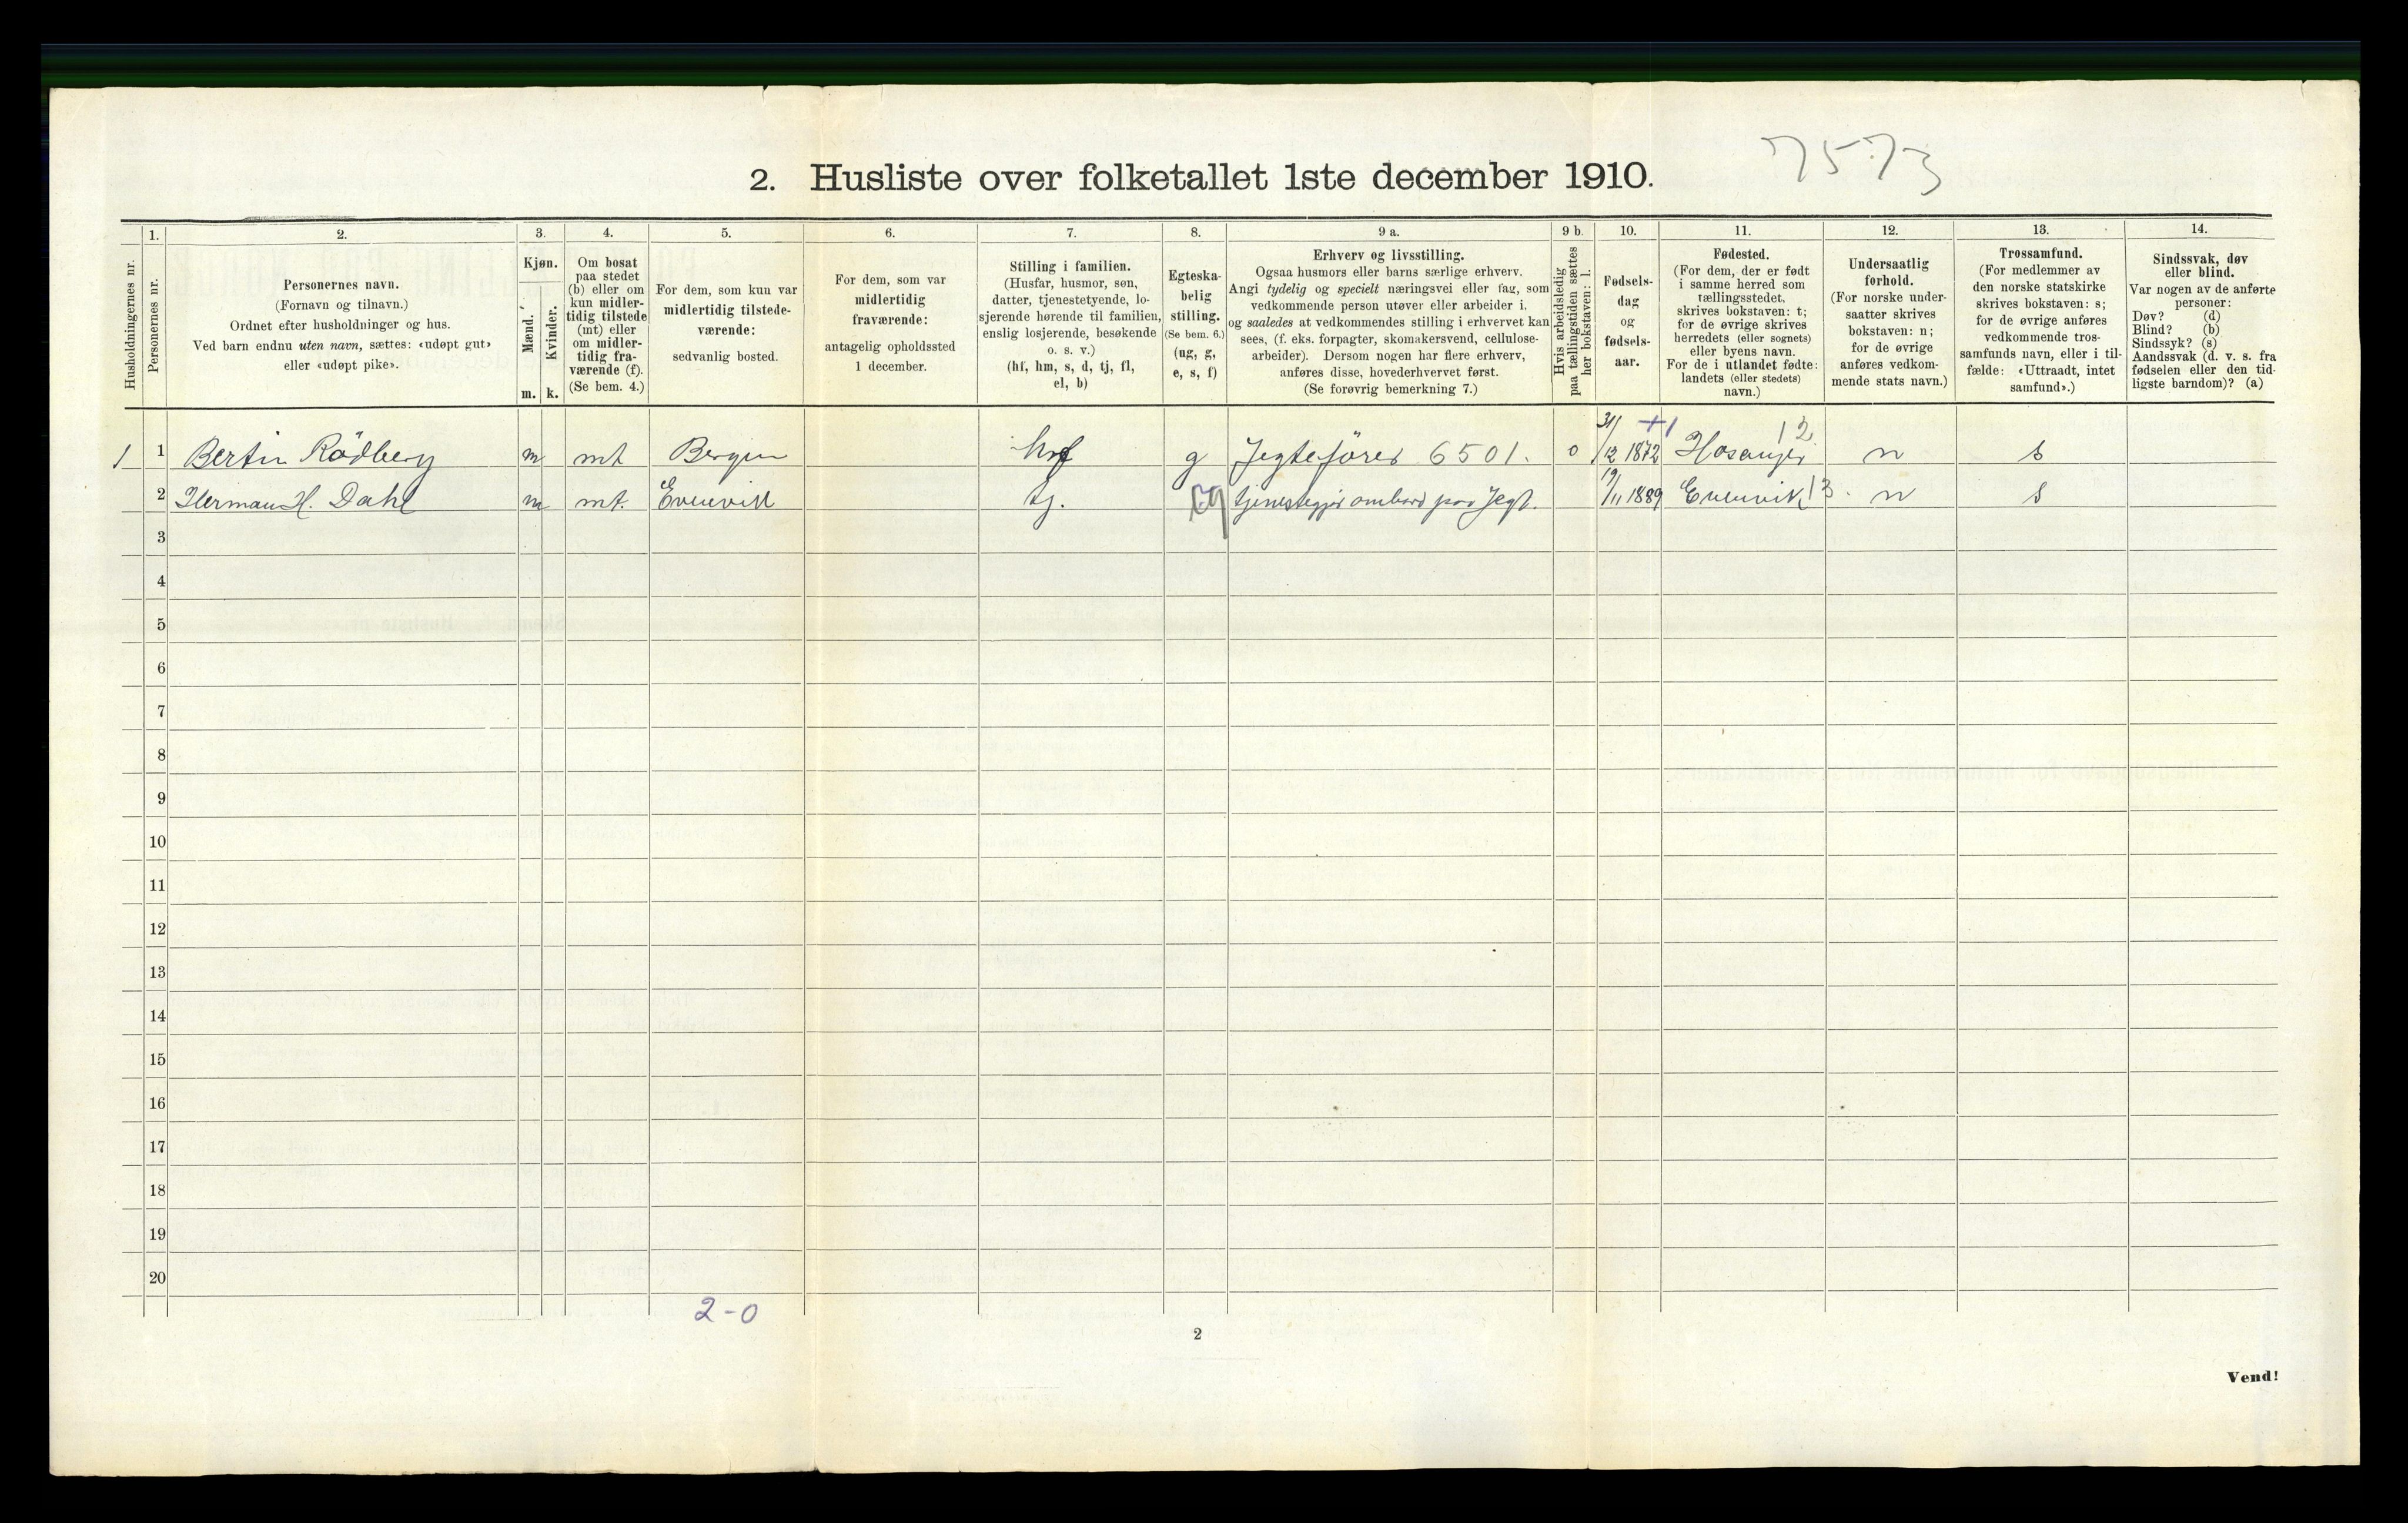 7573
2. Husliste over folketallet 1ste december 1910.
Husholdningernes nr.
1.
Personernes nr.
2.
Personernes navn.
(Fornavn og tilnavn.)
Ordnet efter husholdninger og hus.
Ved barn endnu uten navn, sættes: «udøpt gut»
eller «udøpt pike».
3.
Kjøn.
Mænd.
Kvinder.
m. k.
4.
Om bosat
paa stedet
(b) eller om
kun midler-
tidig tilstede
(mt) eller
om midler-
tidig fra-
værende (f).
(Se bem. 4.)
5.
For dem, som kun var
midlertidig tilstede-
værende:
sedvanlig bosted.
6.
For dem, som var
midlertidig
fraværende:
antagelig opholdssted
1 december.
7.
Stilling i familien.
(Husfar, husmor, søn,
datter, tjenestetyende, lo-
sjerende hørende til familien,
enslig losjerende, besøkende
o. s. v.)
(hf, hm, s, d, tj, fl,
el, b)
8.
Egteska-
belig
stilling.
(Se bem. 6.)
(ug, g,
e, s, f)
9 a.
Erhverv og livsstilling.
Ogsaa husmors eller barns særlige erhverv.
Angi tydelig og specielt næringsvei eller fag, som
vedkommende person utøver eller arbeider i,
og saaledes at vedkommendes stilling i erhvervet kan
sees, (f. eks. forpagter, skomakersvend, cellulose-
arbeider). Dersom nogen har flere erhverv,
anføres disse, hovederhvervet først.
(Se forøvrig bemerkning 7.)
9 b.
Hvis arbeidsledig
paa tællingstiden sættes
her bokstaven: l.
10.
Fødsels-
dag
og
fødsels-
aar.
11.
Fødested.
(For dem, der er født
i samme herred som
tællingsstedet,
skrives bokstaven: t;
for de øvrige skrives
herredets (eller sognets)
eller byens navn.
For de i utlandet fødte:
landets (eller stedets)
navn.)
12.
Undersaatlig
forhold.
(For norske under-
saatter skrives
bokstaven: n;
for de øvrige
anføres vedkom-
mende stats navn.)
13.
Trossamfund.
(For medlemmer av
den norske statskirke
skrives bokstaven: s;
for de øvrige anføres
vedkommende tros-
samfunds navn, eller i til-
fælde: «Uttraadt, intet
samfund».)
14.
Sindssvak, døv
eller blind.
Var nogen av de anførte
personer:
Døv? (d)
Blind? (b)
Sindssyk? (s)
Aandssvak (d. v. s. fra
fødselen eller den tid-
ligste barndom)? (a)
1 1 Bertin Rödberg m mt Bergen g Jegtefører 6501. 0 31/12 1872 Hosanger 12 n s
2 Herman H. Dahl m mt. Evenvik tj. ug tjenestegjør ombord paa Jegt. 19/11 1889 Evenvik 13. n s
3
4
5
6
7
8
9
10
11
12
13
14
15
16
17
18
19
20
2-0
2
Vend!